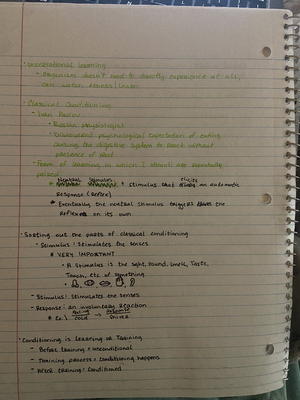 • Observational learning
• Organisms doesn't need to directly experience at all,
can watch others/listen
• Classical Conditioning
- Ivan Pavlov
• Russian physiologist
• Discovered psychological expectation of eating
causing the digestive system to react without
presence of food
- Form of learning in which 2 stimuli are repeatedly
paired
Neutral Stimulus + stimulus that elicits an automatic
Response (Reflex)
* Eventually the neutral stimulus triggers the
Reflex on its own
• Sorting out the parts of classical conditioning
- Stimulus: Stimulates the senses
* VERY IMPORTANT
• A stimulus is the sight, sound, smell, taste,
Touch, etc of something
- Stimulus: Stimulates the senses
- Response: an involuntary reaction
* Ex:
COLD
Response
Shiver
• Conditioning is Learning or Training
- Before training = unconditional
- Training process = conditioning happens
- After training: Conditioned